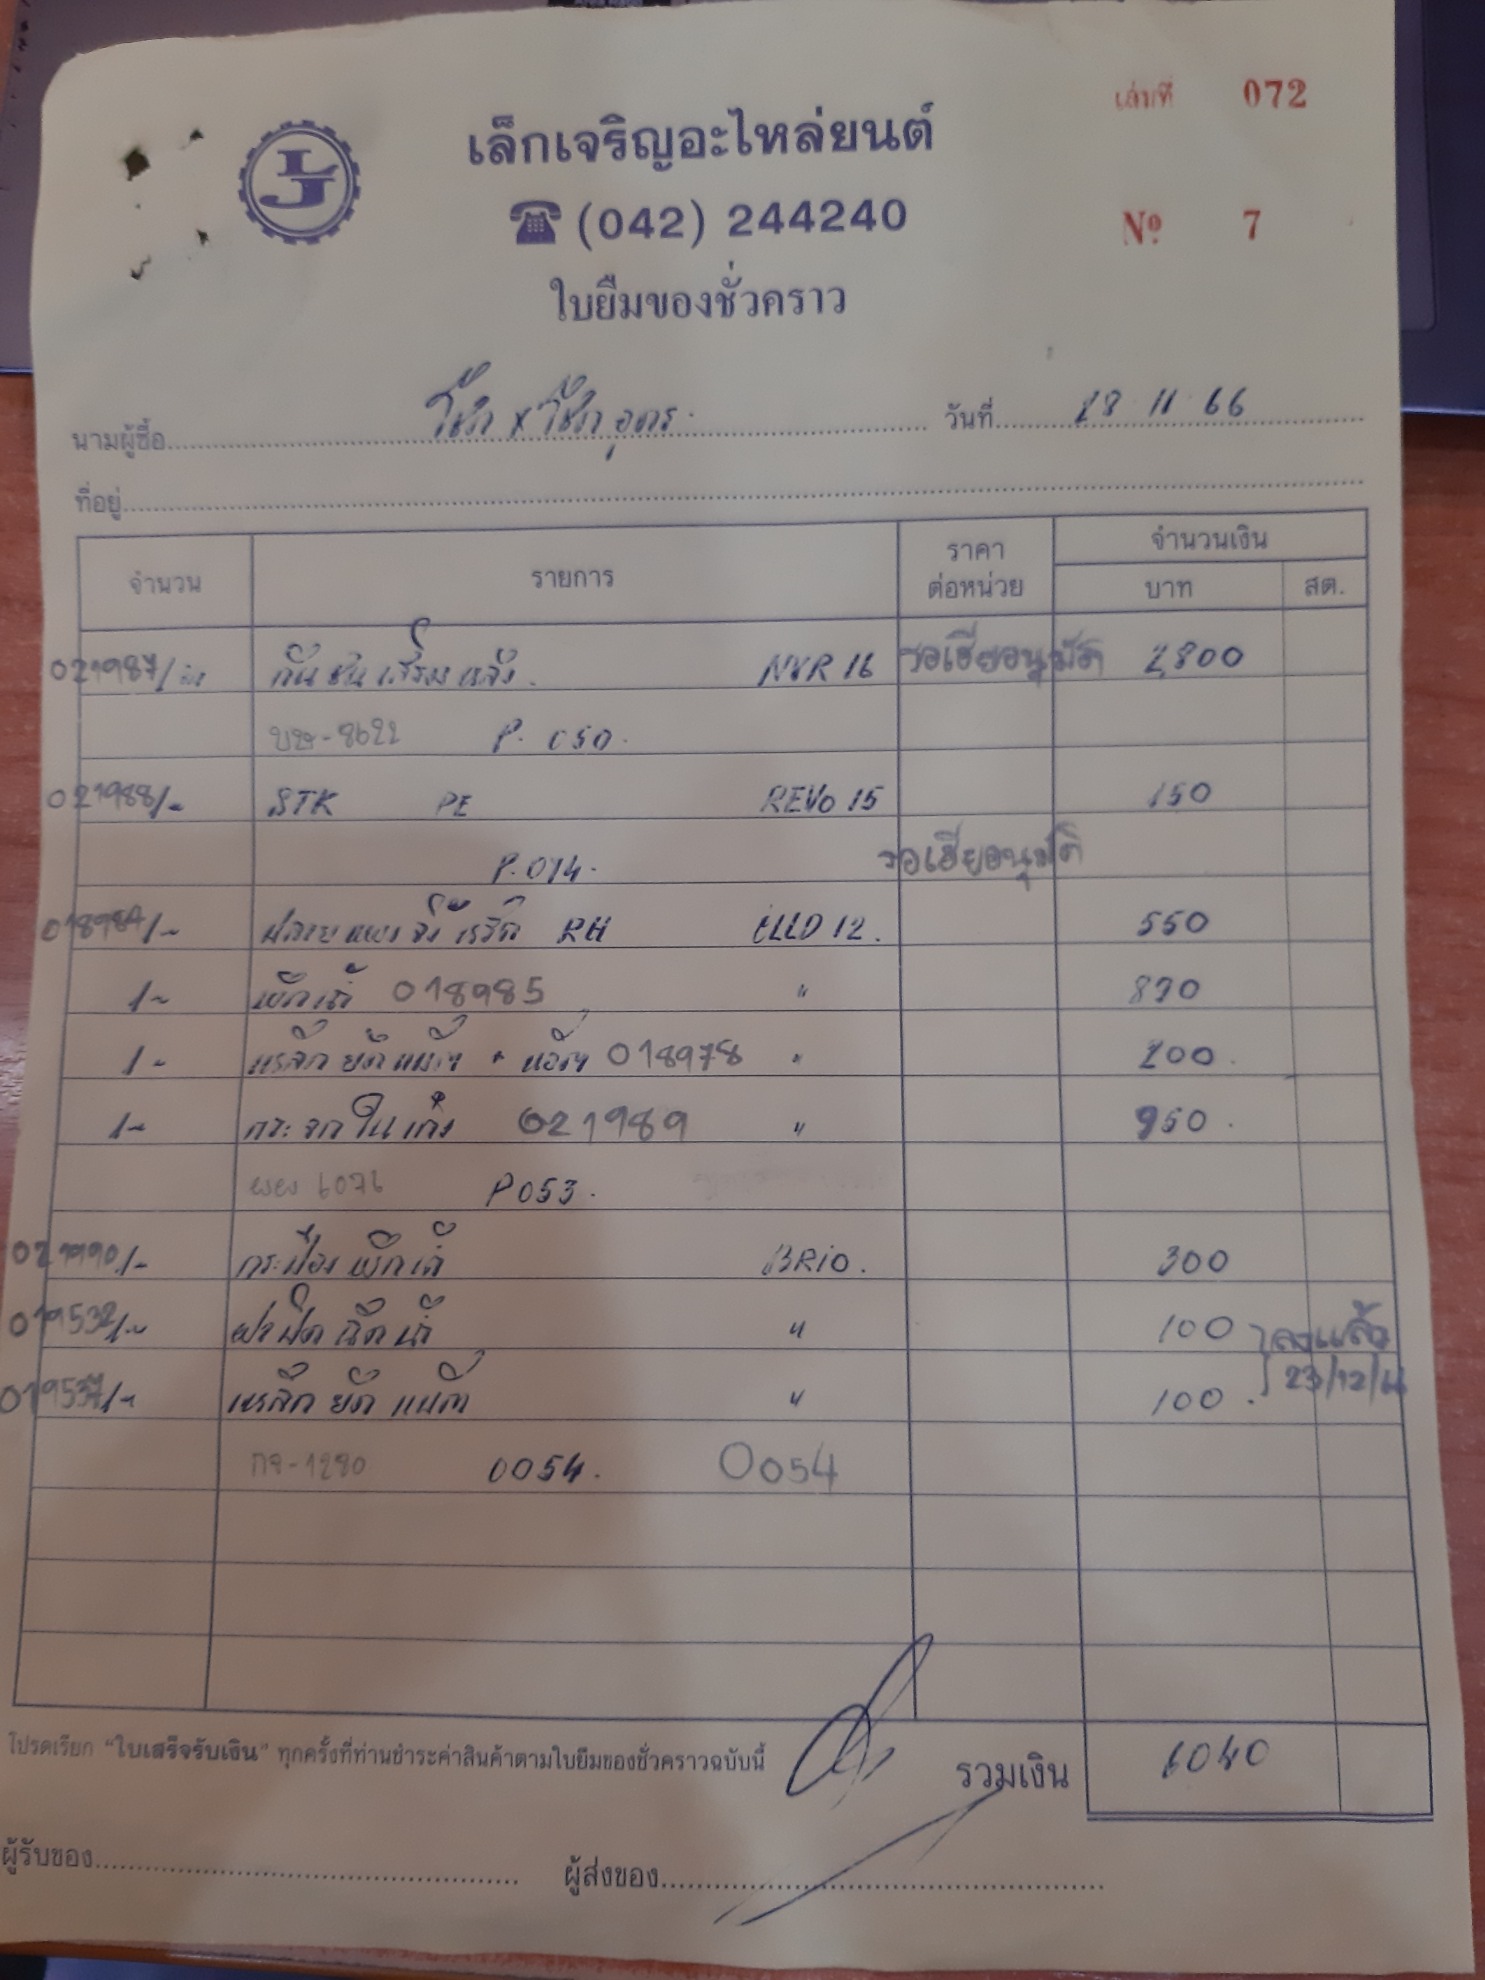 เล่มที่ 072
เล็กเจริญอะไหล่ยนต์
LJ
(042) 244240
Nº 7
ใบยืมของชั่วคราว
นามผู้ซื้อ โชค x โชค อุดร. วันที่ 28 11 66
ที่อยู่
จำนวน รายการ ราคาต่อหน่วย จำนวนเงิน บาท สต.
021987/ กันชนเสริมหลัง. NVR 16 รอเฮียอนุมัติ 2800
บษ-8622 P. 050.
021988/~ STK PE REVO 15 150
P.074. รอเฮียอนุมัติ
018984/~ RH 12. 550
1~ หม้อน้ำ 018985 "
1~ เหล็กยึดแบต + น๊อต 018978 " 200.
1~ กระจกในเก๋ง 021989 " 950.
6076 P053.
021990/~ กระป๋องพักน้ำ BRiO. 300
019532/~ ฝาปิดฉีดน้ำ " 100 ลงแล้ว
01953/~ เหล็กยึดแบต " 100. 23/12/66
กจ-1280 0054. 0054
โปรดเรียก "ใบเสร็จรับเงิน" ทุกครั้งที่ท่านชำระค่าสินค้าตามใบยืมของชั่วคราวฉบับนี้ รวมเงิน 6040
ผู้รับของ ผู้ส่งของ